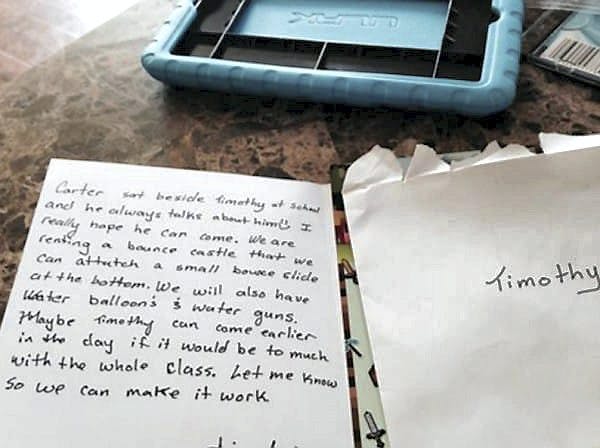 Carter sat beside Timothy at school
and he always talks about him! I
really hope he can come. We are
renting a bounce castle that we
can attatch a small bounce slide
at the bottom. We will also have
Water balloon's & water guns.
Maybe Timothy can come earlier
in the day if it would be to much
with the whole class. Let me know
So we can make it work
Timothy